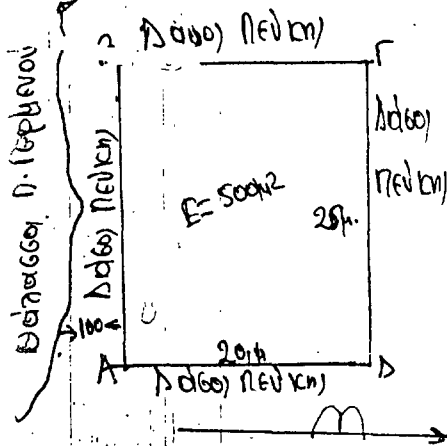 Δάσος Πεύκης
Γ
Δάσος
Πεύκης
Θάλασσα
Δάσος Πεύκης
E= 500μ2
25μ.
100
20μ
A
Δ
Δάσος Πεύκης